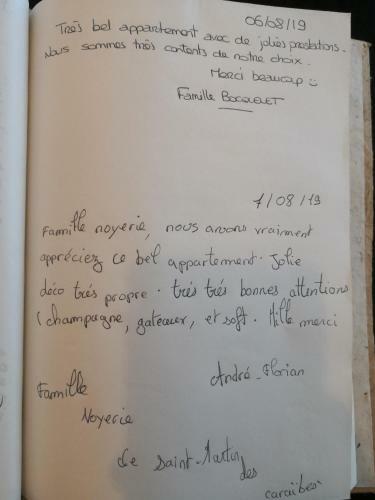 06/08/19
Très bel appartement avec de jolies prestations.
Nous sommes très contents de notre choix.
Merci beaucoup
Famille BOCQUET
1/08/19
Famille noyerie, nous avons vraiment
appréciez ce bel appartement. Jolie
déco très propre. très très bonnes attentions
(champagne, gateaux, et soft. Mille merci
André-Florian
Famille
Noyerie
de Saint-Martin
des
caraïbes